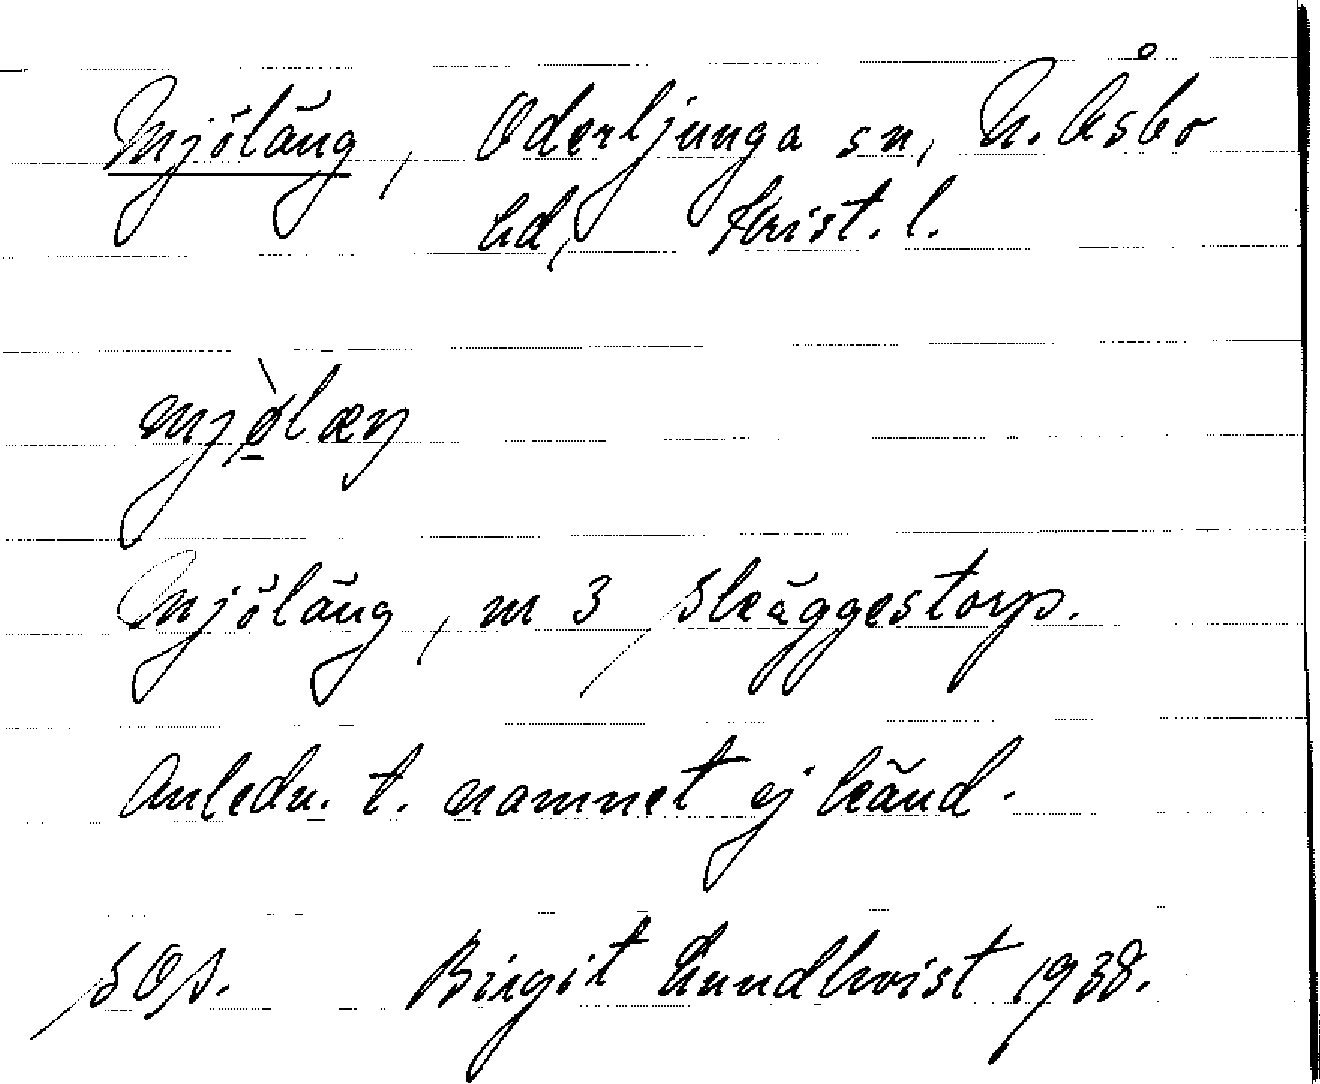 Mjöläng, Oderljunga sn, N. Åsbo
hd, Krist. l.
mjø̀læŋ
Mjöläng, m 3 Skäggestorp.
Anledn. t. namnet ej känd.
SOA. Birgit Lundkvist 1938.